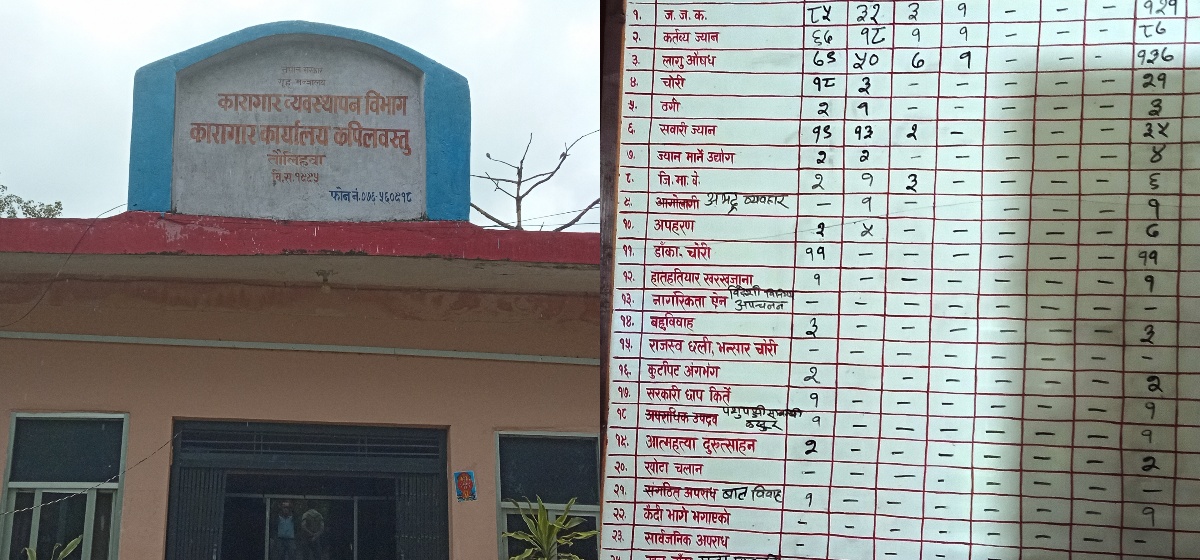 नेपाल सरकार
गृह मन्त्रालय
कारागार व्यवस्थापन विभाग
कारागार कार्यालय कपिलवस्तु
तौलिहवा
वि.सं.१९९५
फोन नं.०७६-५६०५१८
१. ज.ज.क. ८५ ३२ ३ १ - - - १२१
२. कर्तव्य ज्यान ६७ १८ १ १ - - - ८७
३. लागु औषध ७९ ५० ७ १ - - - १३७
४. चोरी १८ ३ - - - - - २१
५. ठगी २ १ - - - - - ३
६. सवारी ज्यान १९ १३ २ - - - - ३४
७. ज्यान मार्ने उद्योग २ २ - - - - - ४
८. जि.मा.वे. २ १ ३ - - - - ६
९. आगोलागी अभद्र व्यवहार - १ - - - - - १
१०. अपहरण २ ५ - - - - - ७
११. डाँका.चोरी ११ - - - - - - ११
१२. हातहतियार खरखजाना १ - - - - - - १
१३. नागरिकता ऐन विदेशी विनिमय अपचलन - - - - - - - -
१४. बहुविवाह ३ - - - - - - ३
१५. राजस्व छली, भन्सार चोरी - - - - - - - -
१६. कुटपिट अंगभंग २ - - - - - २
१७. सरकारी छाप किर्ते १ - - - - - - १
१८ अपराधिक उपद्रव पशुपंछी सम्बन्धी कसुर १ - - - - - - १
१९. आत्महत्या दुरुत्साहन २ - - - - - - २
२०. खोटा चलान - - - - - - - -
२१. संगठित अपराध बाल विवाह १ - - - - - - १
२२. कैदी भागे भगाएको - - - - - - -
२३. सार्वजनिक अपराध - - - - - - -